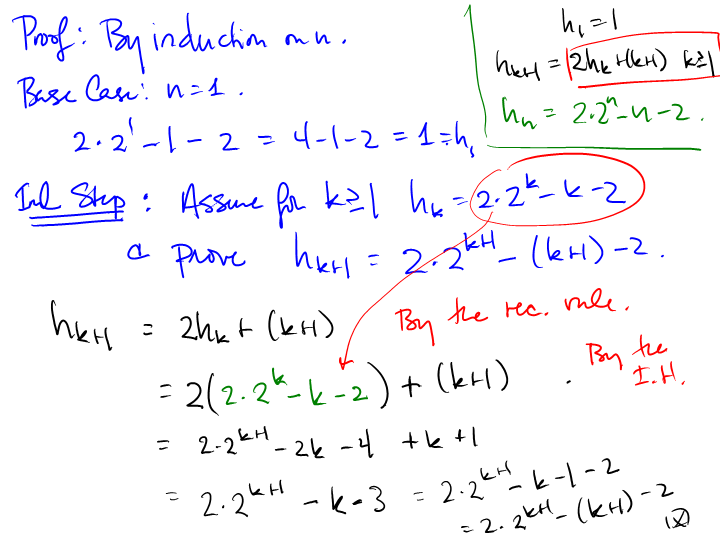 Proof: By induction on n.
Base Case: n=1.
2·2¹ -1 - 2 = 4-1-2 = 1 = h₁
h₁ = 1
hₖ₊₁ = 2hₖ+(k+1) k≥1
hₙ = 2·2ⁿ-n-2.
Ind Step: Assume for k≥1 hₖ = 2·2ᵏ-k-2
& prove hₖ₊₁ = 2·2ᵏ⁺¹ - (k+1) -2.
hₖ₊₁ = 2hₖ + (k+1) By the rec. rule.
= 2(2·2ᵏ-k-2) + (k+1). By the I.H.
= 2·2ᵏ⁺¹ -2k -4 +k +1
= 2·2ᵏ⁺¹ -k-3 = 2·2ᵏ⁺¹ -k-1-2
= 2·2ᵏ⁺¹ -(k+1) -2